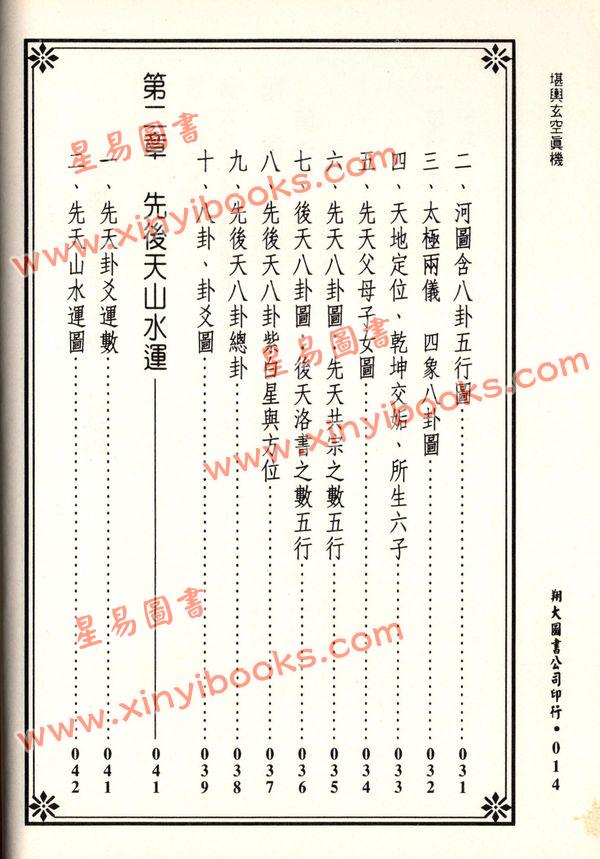 堪輿玄空眞機
二、河圖含八卦五行圖……031
三、太極兩儀 四象八卦圖……032
四、天地定位、乾坤交姤、所生六子……033
五、先天父母子女圖……034
六、先天八卦圖：先天共宗之數五行……035
七、後天八卦圖：後天洛書之數五行……036
八、先後天八卦紫白星與方位……037
九、先後天八卦總卦……038
十、八卦、卦爻圖……039
第二章 先後天山水運——041
一、先天卦爻運數……041
二、先天山水運圖……042
翔大圖書公司印行•014
星易圖書
www.xinyibooks.com
星易圖書
www.xinyibooks.com
星易圖書
www.xinyibooks.com